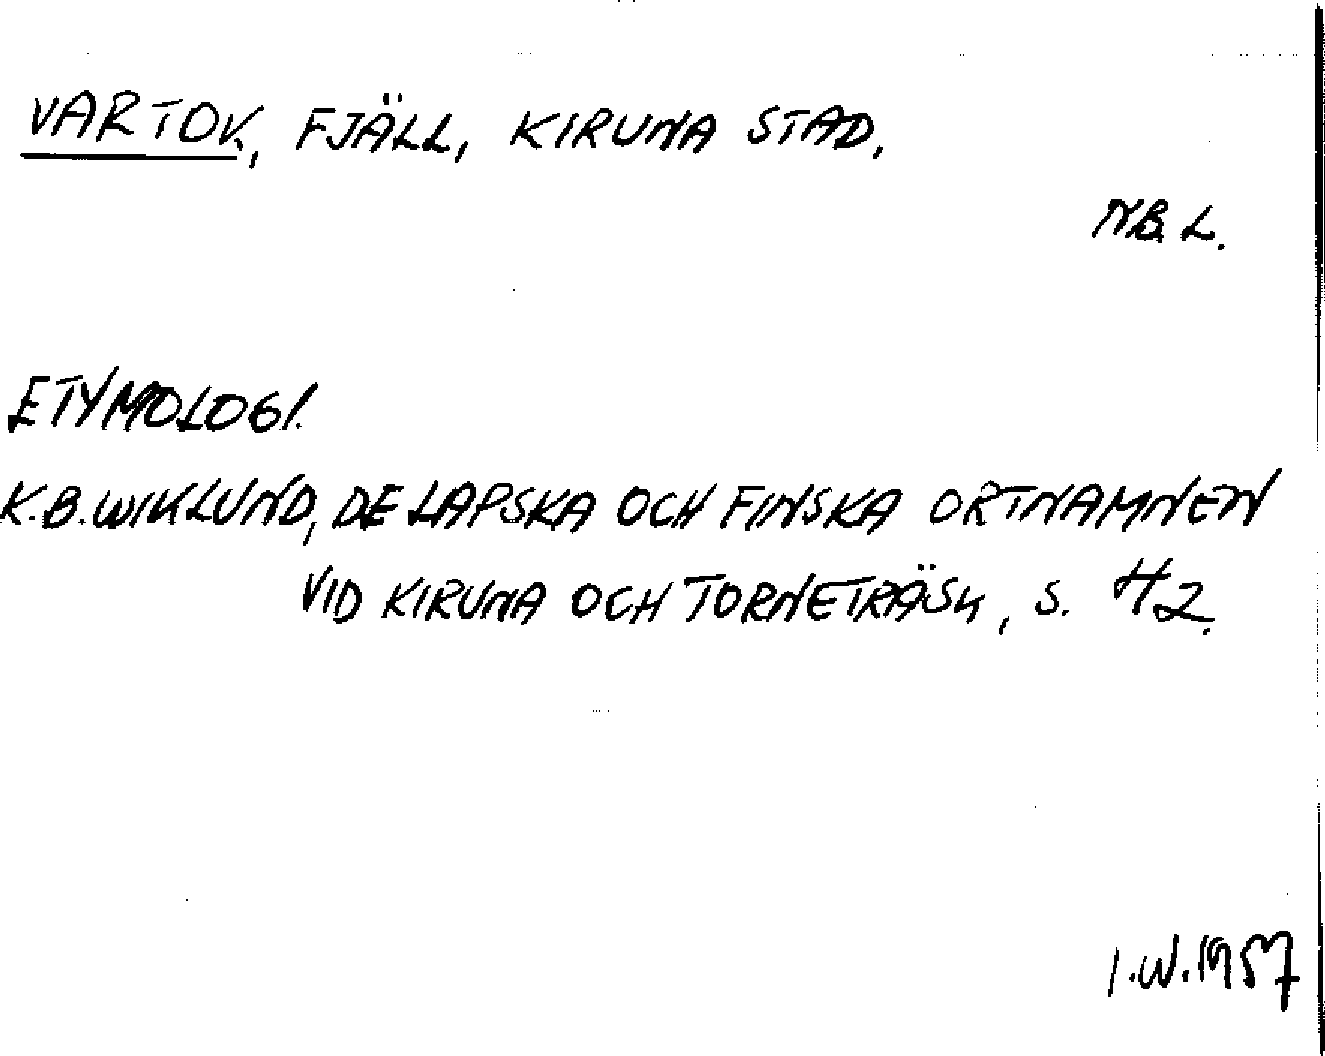 VARTOK, FJÄLL, KIRUNA STAD.
NB L.
ETYMOLOGI.
K.B. WIKLUND, DE LAPSKA OCH FINSKA ORTNAMNEN
VID KIRUNA OCH TORNETRÄSK, S. 42.
I.W. 1957